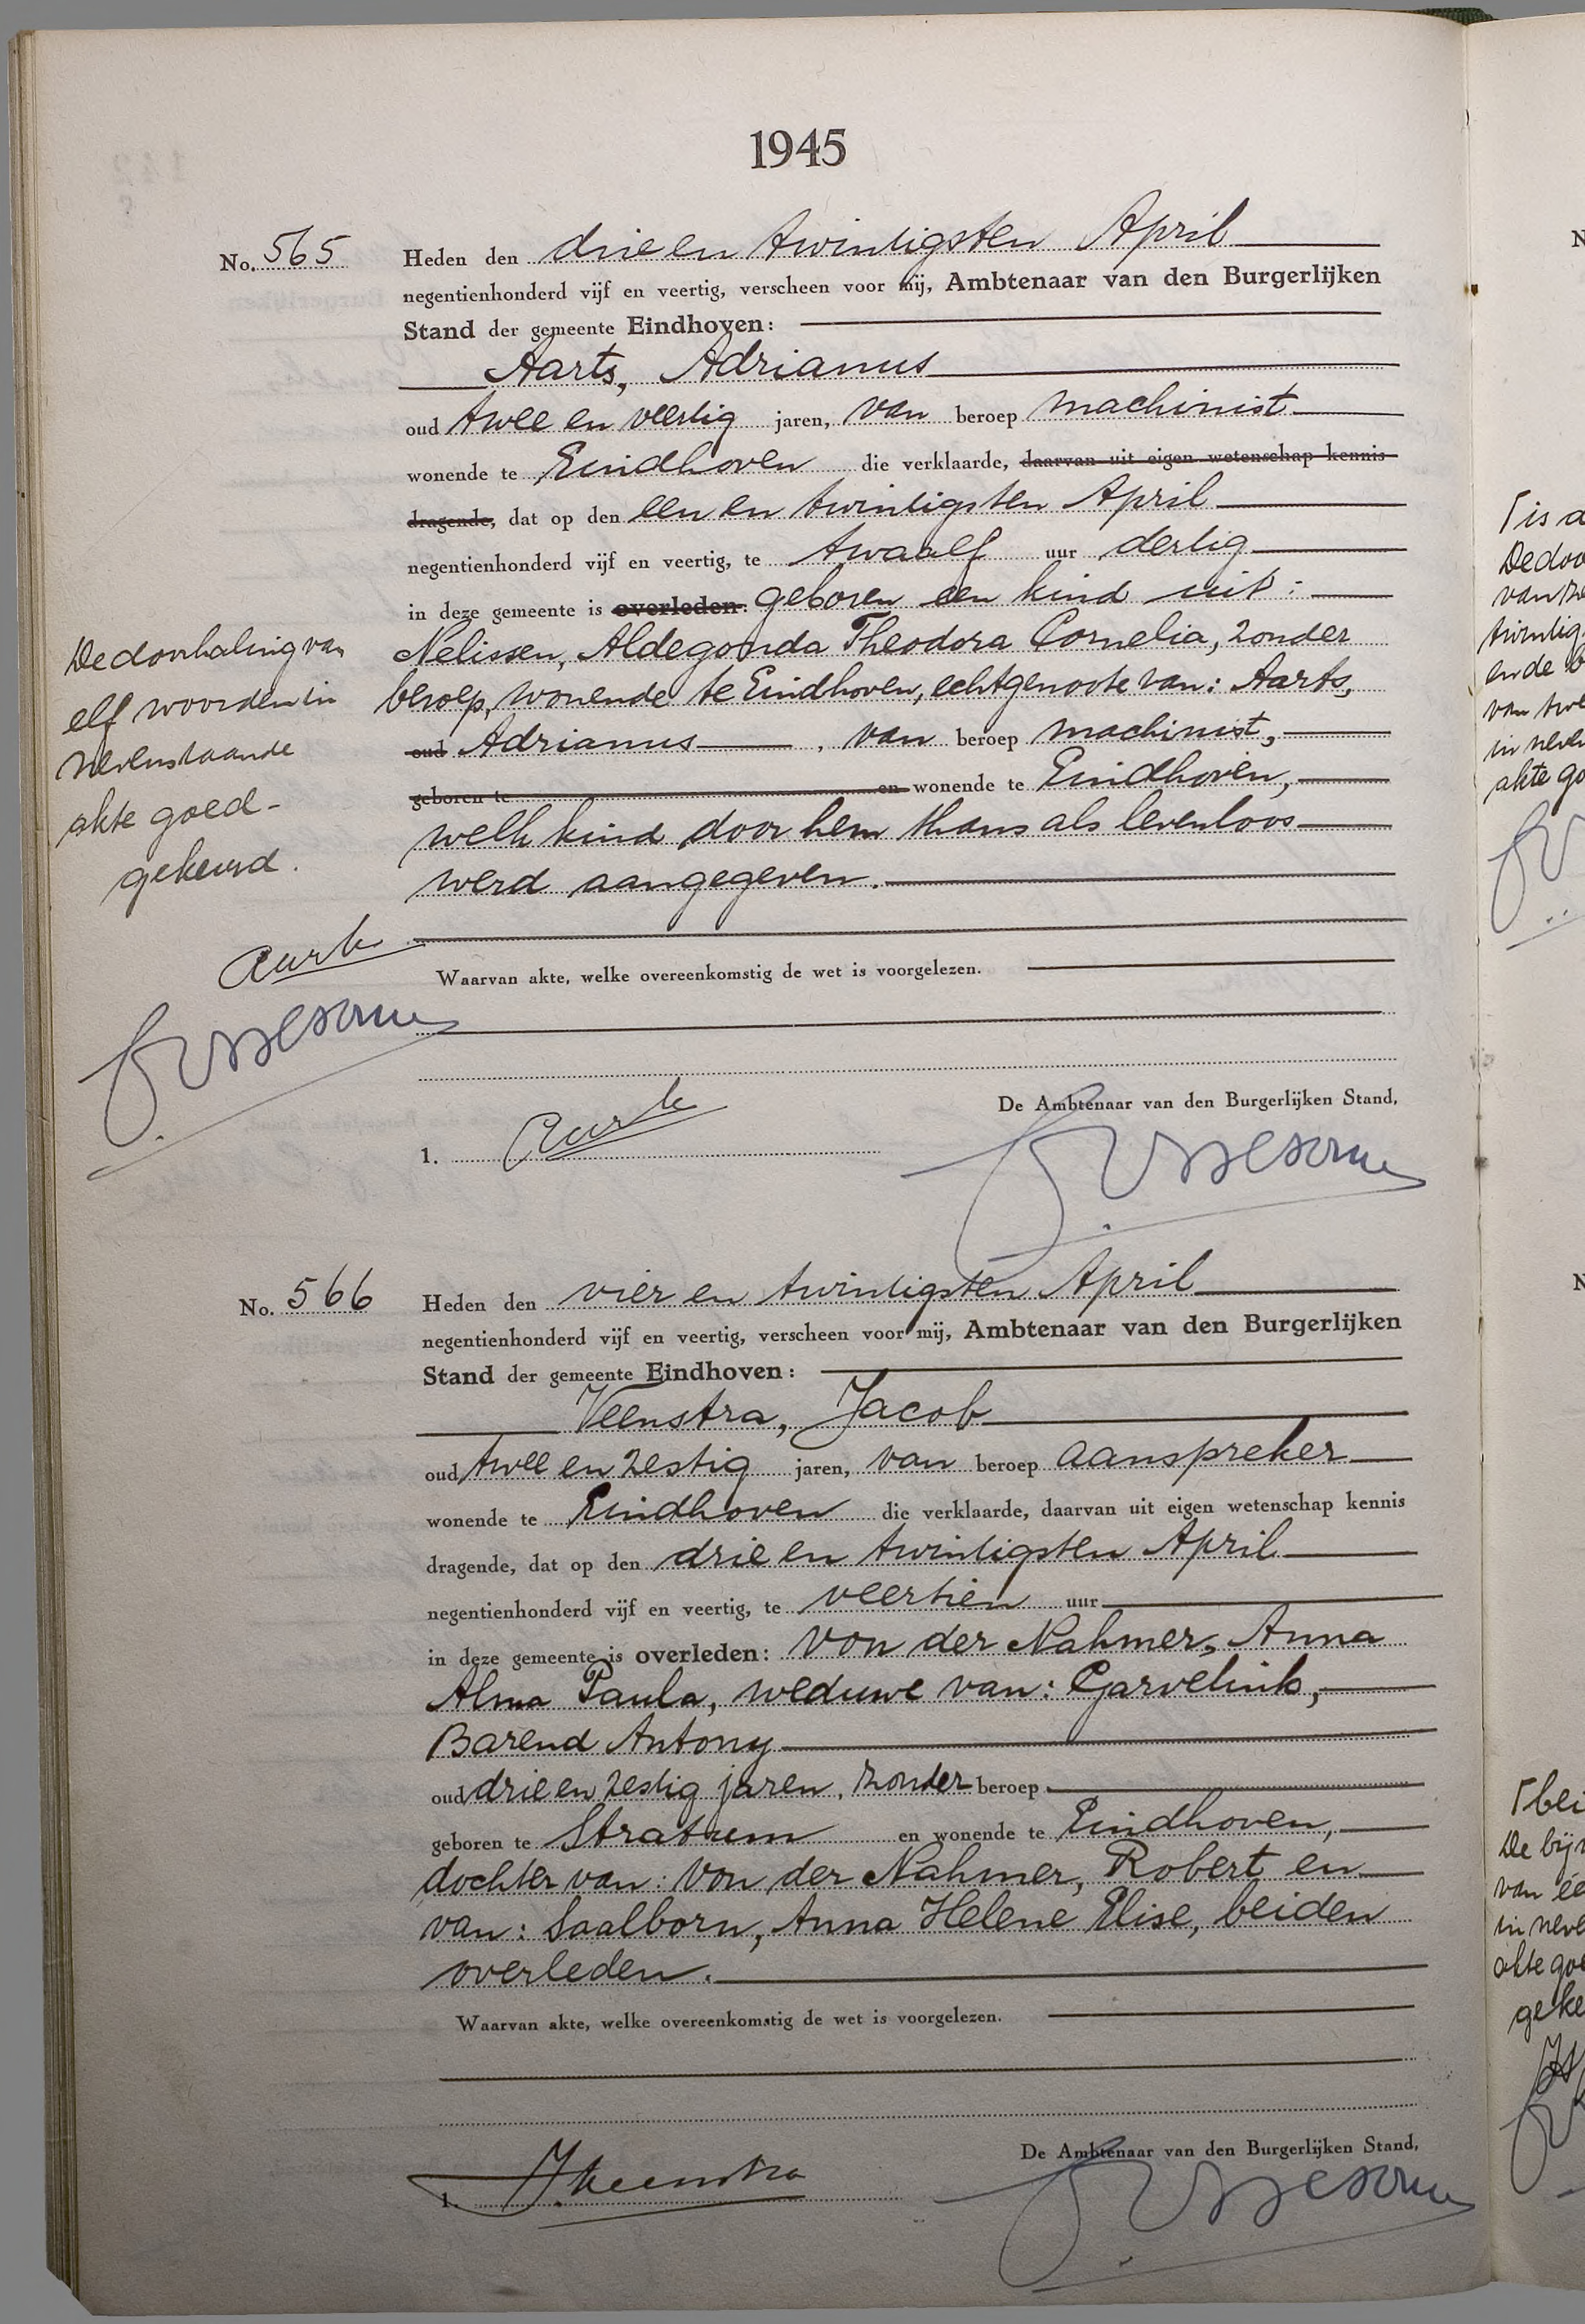 1945
No. 565
Heden den drie en twintigsten April
negentienhonderd vijf en veertig, verscheen voor mij, Ambtenaar van den Burgerlijken
Stand der gemeente Eindhoven:
Aarts, Adrianus
oud twee en veertig jaren, van beroep machinist
wonende te Eindhoven die verklaarde, daarvan uit eigen wetenschap kennis
dragende, dat op den een en twintigsten April
negentienhonderd vijf en veertig, te twaalf uur dertig
in deze gemeente is overleden: geboren een kind uit:
Nelissen, Aldegonda Theodora Cornelia, zonder
beroep, wonende te Eindhoven, echtgenoote van: Aarts,
oud Adrianus, van beroep machinist,
geboren te en wonende te Eindhoven,
welk kind door hem thans als levenloos
werd aangegeven.
De doorhaling van
elf woorden in
nevenstaande
akte goed-
gekeurd.
Aarts
Waarvan akte, welke overeenkomstig de wet is voorgelezen.
De Ambtenaar van den Burgerlijken Stand,
1. Aarts
No. 566
Heden den vier en twintigsten April
negentienhonderd vijf en veertig, verscheen voor mij, Ambtenaar van den Burgerlijken
Stand der gemeente Eindhoven:
Veenstra, Jacob
oud twee en zestig jaren, van beroep aanspreker
wonende te Eindhoven die verklaarde, daarvan uit eigen wetenschap kennis
dragende, dat op den drie en twintigsten April
negentienhonderd vijf en veertig, te veertien uur
in deze gemeente is overleden: von der Nahmer, Anna
Alma Paula, weduwe van: Garvelink,
Barend Antony
oud drie en zestig jaren, zonder beroep
geboren te Stratum en wonende te Eindhoven,
dochter van: von der Nahmer, Robert en
van: Saalborn, Anna Helene Elise, beiden
overleden.
Waarvan akte, welke overeenkomstig de wet is voorgelezen.
De Ambtenaar van den Burgerlijken Stand,
1. J. Veenstra